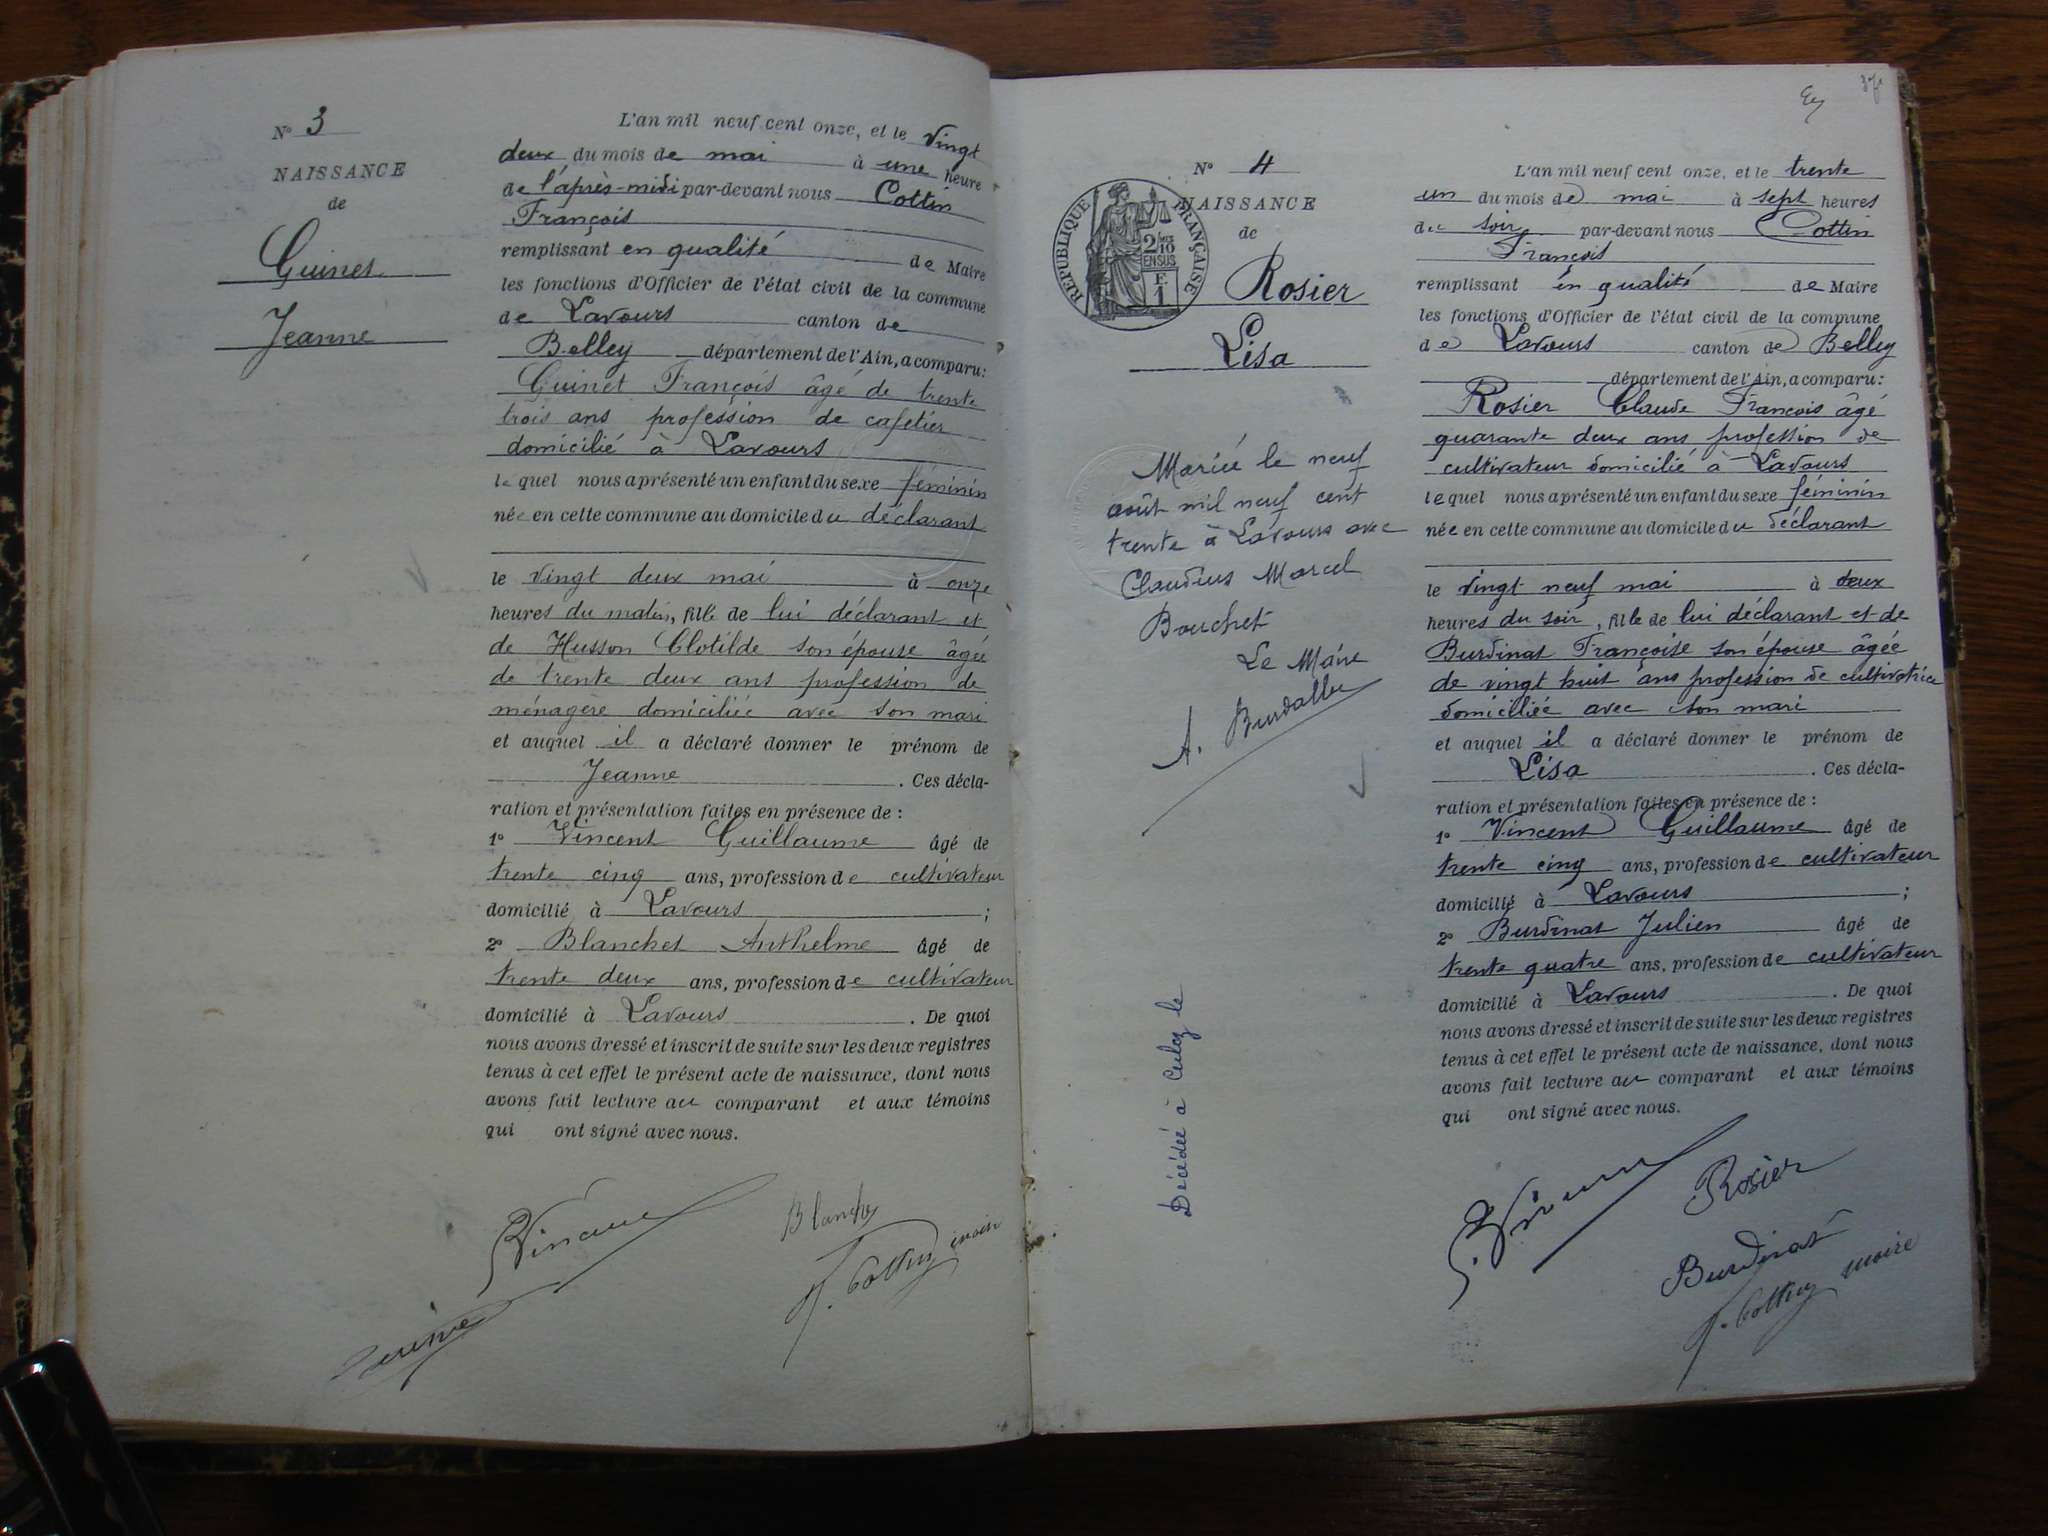 N° 3
NAISSANCE
de
Guinet
Jeanne
L'an mil neuf cent onze, et le vingt
deux du mois de mai à une heure
de l'après-midi par-devant nous Cottin
François
remplissant en qualité de Maire
les fonctions d'Officier de l'état civil de la commune
de Lavours canton de
Belley département de l'Ain, a comparu:
Guinet François âgé de trente
trois ans profession de cafetier
domicilié à Lavours
lequel nous a présenté un enfant du sexe féminin
née en cette commune au domicile du déclarant
le vingt deux mai à onze
heures du matin, fille de lui déclarant et
de Husson Clotilde son épouse âgée
de trente deux ans profession de
ménagère domiciliée avec son mari
et auquel il a déclaré donner le prénom de
Jeanne. Ces décla-
ration et présentation faites en présence de :
1° Vincent Guillaume âgé de
trente cinq ans, profession de cultivateur
domicilié à Lavours ;
2° Blanchet Anthelme âgé de
trente deux ans, profession de cultivateur
domicilié à Lavours. De quoi
nous avons dressé et inscrit de suite sur les deux registres
tenus à cet effet le présent acte de naissance, dont nous
avons fait lecture au comparant et aux témoins
qui ont signé avec nous.
Vincent
Blanchet
F. Cottin maire
N° 4
NAISSANCE
de
RÉPUBLIQUE FRANÇAISE
2/10
EN SUS
F.
1
Rosier
Lisa
Mariée le neuf
août mil neuf cent
trente à Lavours avec
Claudius Marcel
Bouchet
Le Maire
A. Burdallet
Décédée à Culoz le
L'an mil neuf cent onze, et le trente
un du mois de mai à sept heures
du soir par-devant nous Cottin
François
remplissant en qualité de Maire
les fonctions d'Officier de l'état civil de la commune
de Lavours canton de Belley
département de l'Ain, a comparu:
Rosier Claude François âgé
quarante deux ans profession de
cultivateur domicilié à Lavours
lequel nous a présenté un enfant du sexe féminin
née en cette commune au domicile du déclarant
le vingt neuf mai à deux
heures du soir, fille de lui déclarant et de
Burdinat Françoise son épouse âgée
de vingt huit ans profession de cultivatrice
domiciliée avec son mari
et auquel il a déclaré donner le prénom de
Lisa. Ces décla-
ration et présentation faites en présence de :
1° Vincent Guillaume âgé de
trente cinq ans, profession de cultivateur
domicilié à Lavours ;
2° Burdinat Julien âgé de
trente quatre ans, profession de cultivateur
domicilié à Lavours. De quoi
nous avons dressé et inscrit de suite sur les deux registres
tenus à cet effet le présent acte de naissance, dont nous
avons fait lecture au comparant et aux témoins
qui ont signé avec nous.
Vincent
Rosier
Burdinat
F. Cottin maire